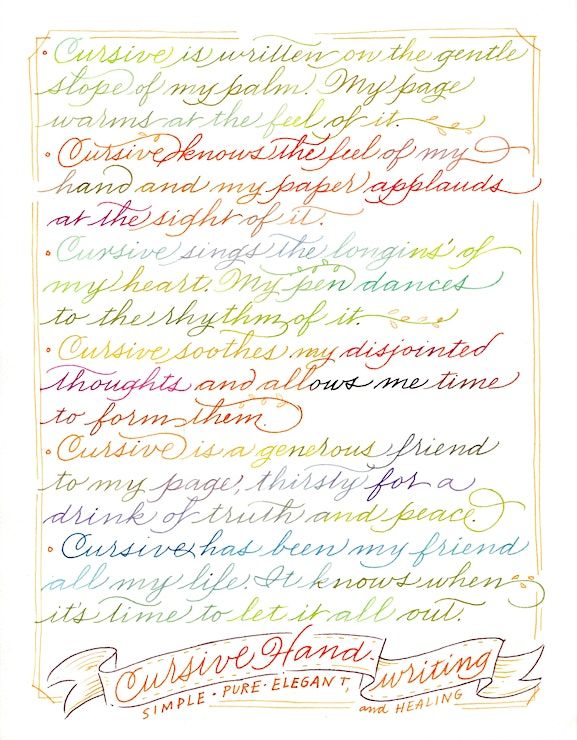 • Cursive is written on the gentle
slope of my palm. My page
warms at the feel of it.
• Cursive knows the feel of my
hand and my paper applauds
at the sight of it.
• Cursive sings the longins' of
my heart. My pen dances
to the rhythm of it.
• Cursive soothes my disjointed
thoughts and allows me time
to form them.
• Cursive is a generous friend
to my page, thirsty for a
drink of truth and peace.
• Cursive has been my friend
all my life. It knows when
it's time to let it all out.
Cursive Hand. writing
SIMPLE • PURE • ELEGANT, and HEALING